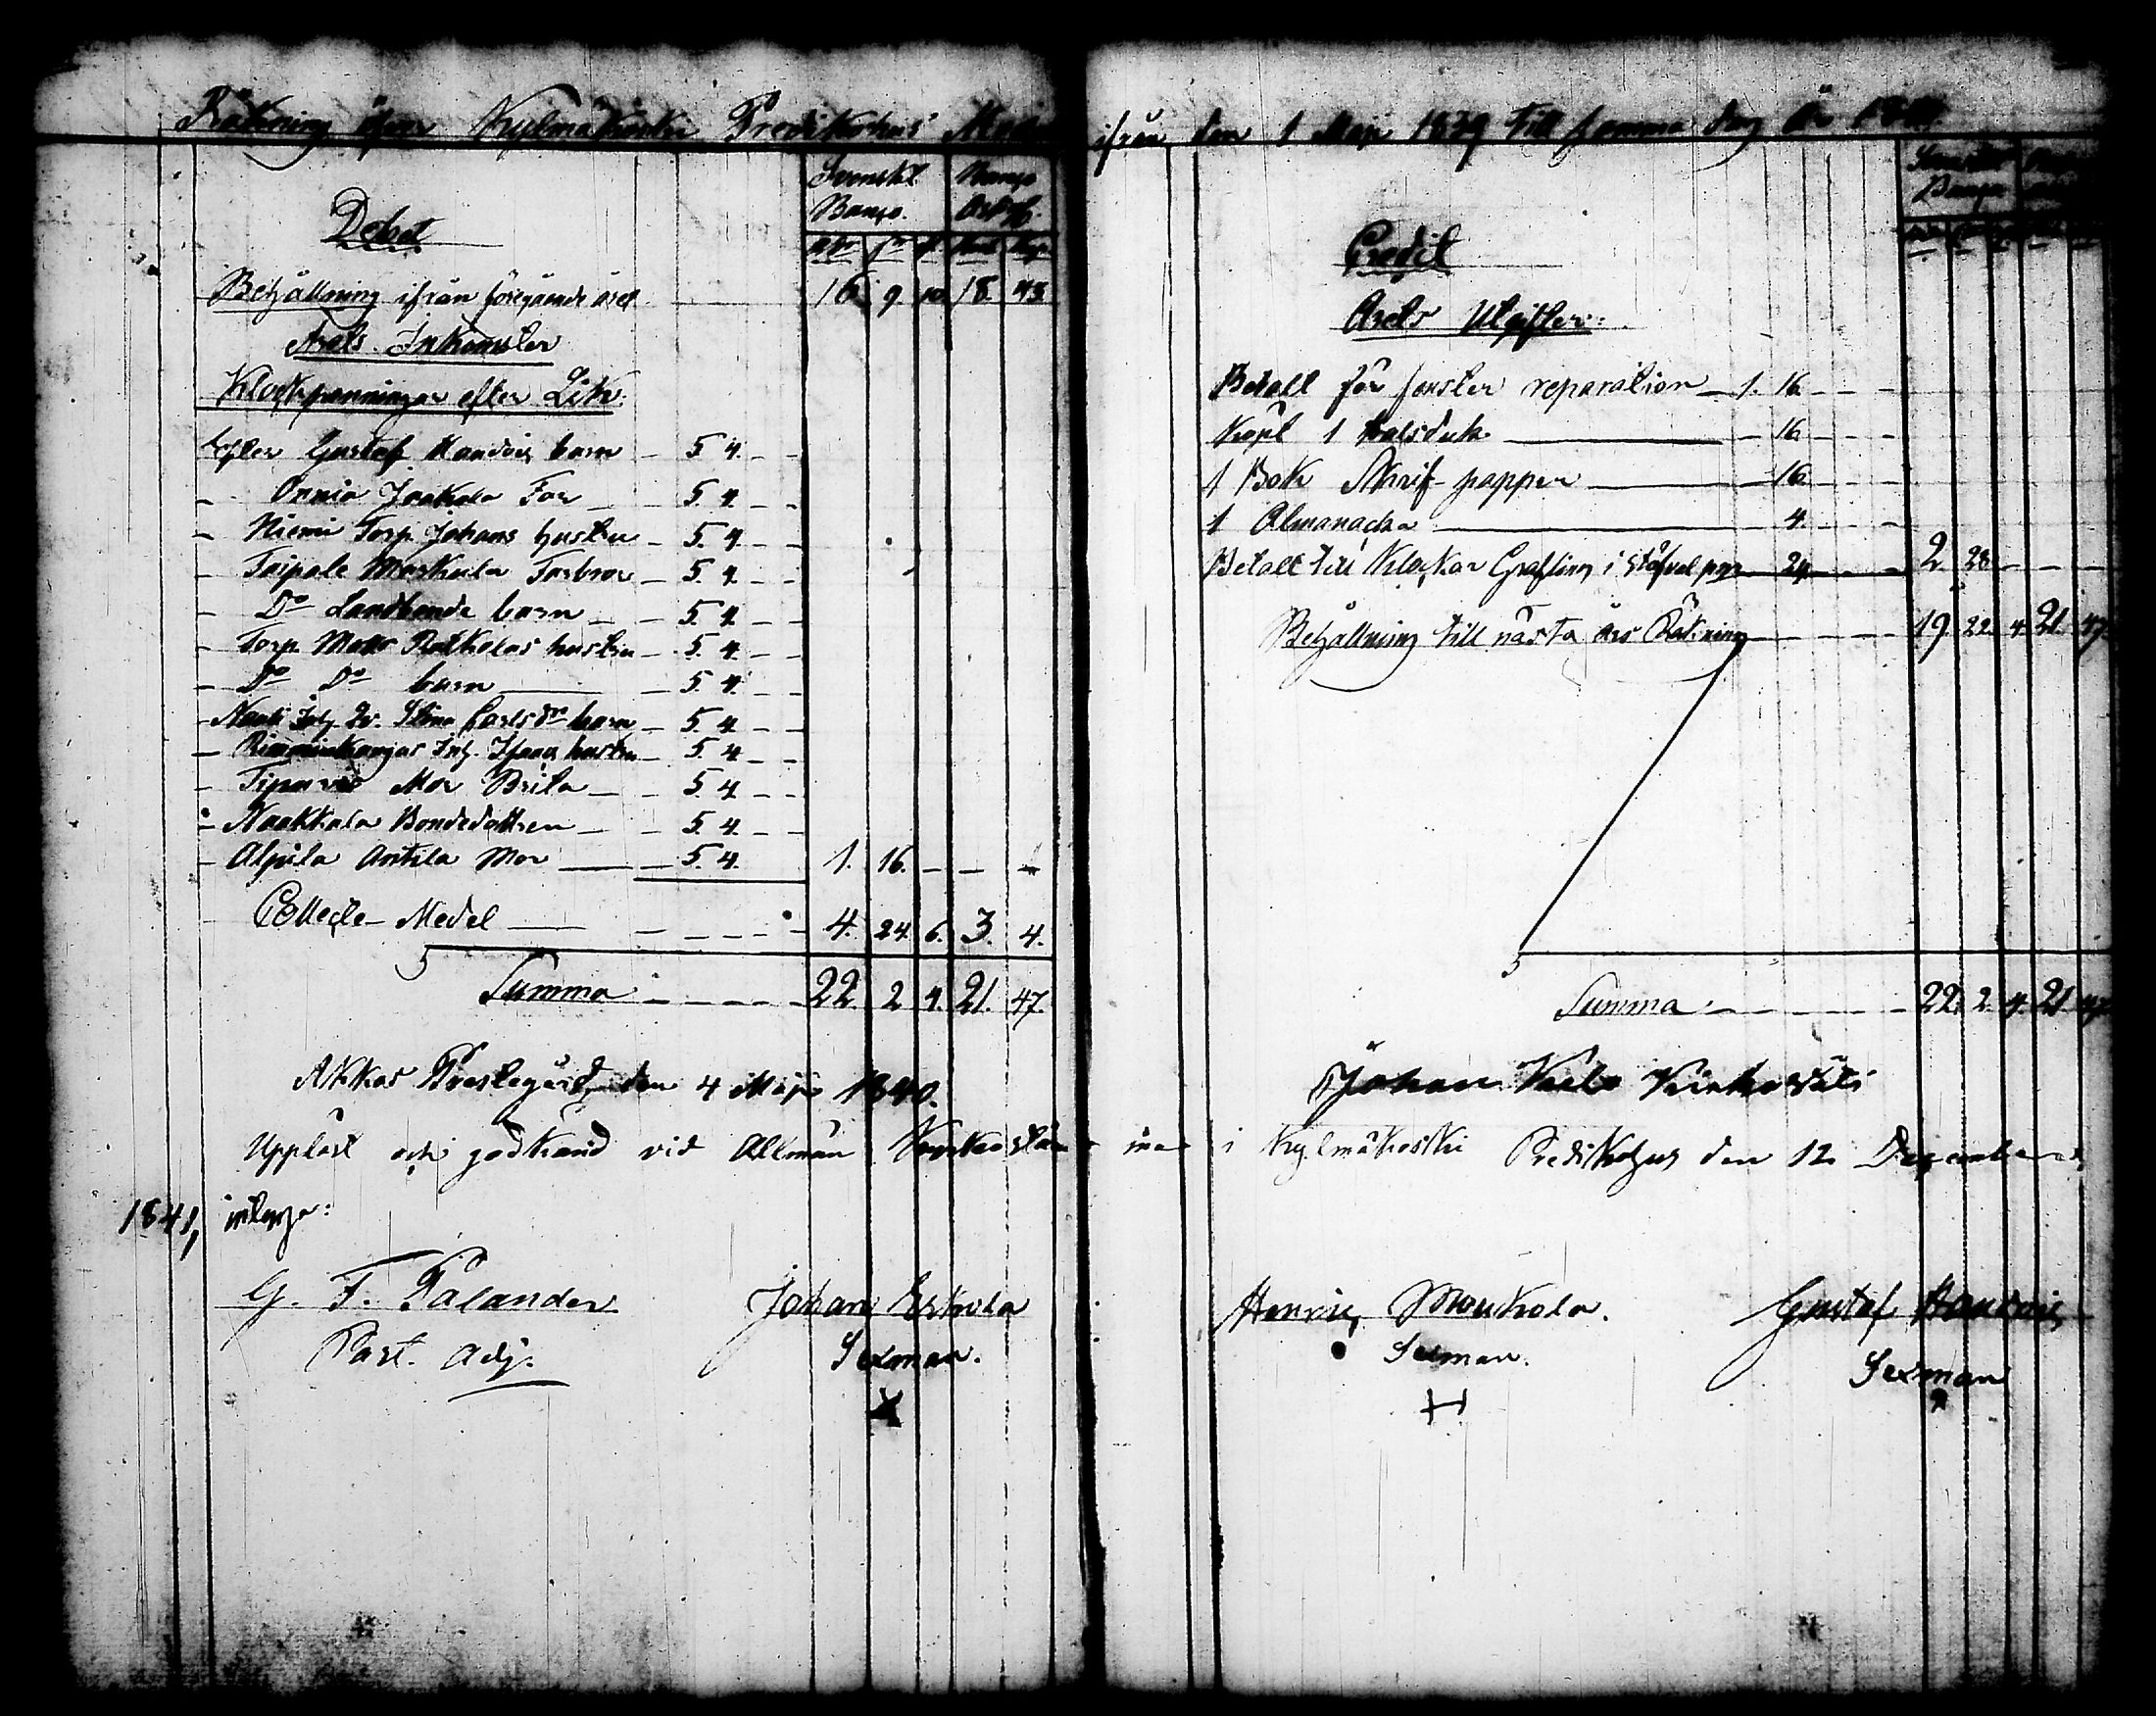 Räkning öfver Kylmäkoski Predikohus Medel ifrån den 1 Maji 1839 till samma dag År 1840
Debet
Svenskt Banco. Banco Ass.
Rdr s r Rub. Kop.
Behållning ifrån föregående året 16. 9. 10. 18. 43
Årets Inkomster
Klockpenningar efter Lik:
Efter Gustaf Handois barn - 5. 4. - -
- Onnia Jaakola Far - - 5. 4. - -
- Niemi Torp. Johans hustru - 5. 4. - -
- Taipale Markula Farbror - 5. 4. - -
- Do Landbonde barn - - 5. 4. - -
- Torp. Matts Ratkolas hustru - 5. 4. - -
- Do Do barn - 5. 4. - -
- Inh. Qv. Stina Carlsdr barn - 5. 4. - -
- Inh. hustru - 5. 4. - -
- Mor Brita - - 5. 4. - -
- Naakkala Bondedottren - - 5. 4. - -
- Alpila Antila Mor - 5. 4. 1. 16. - - -
Collecte Medel - - - - - 4. 24. 6. 3. 4.
Summa - - - - 22. 2. 4. 21. 47.
Akkas Prestegård, den 4 Maji 1840.
Credit
Årets Utgifter:
Betalt för fenster reparation - 1. 16. - - -
Köpt 1 halsduk - 16. - - -
1 Bok Skrif papper - 16. - - -
1 Almanacka - 4. - - -
Betalt till Klockar Grafling i 24. - - - 2. 28. - - -
Behållning till nästa års Räkning - - - - 19. 22. 4. 21. 47.
Summa - - - - - 22. 2. 4. 21. 47.
Johan Kirkoväti
Uppläst och godkänd vid Allmän Sockenstämma i Kylmäkoski Predikohus den 12 December
1841, intyga:
G. F. Palander
Past. Adj.
Johan Eskola
Sexman.
Henric Moukola.
Sexman.
Gustaf Handois
Sexman